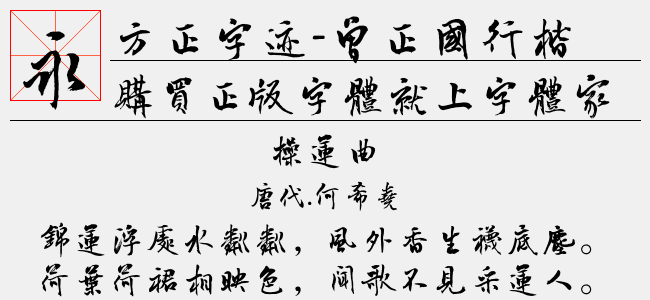 永
方正字迹-曾正國行楷
購買正版字體就上字體家
操蓮曲
唐代.何希堯
錦蓮浮處水粼粼，風外香生襪底塵。
荷葉荷裙相映色，聞歌不見采蓮人。